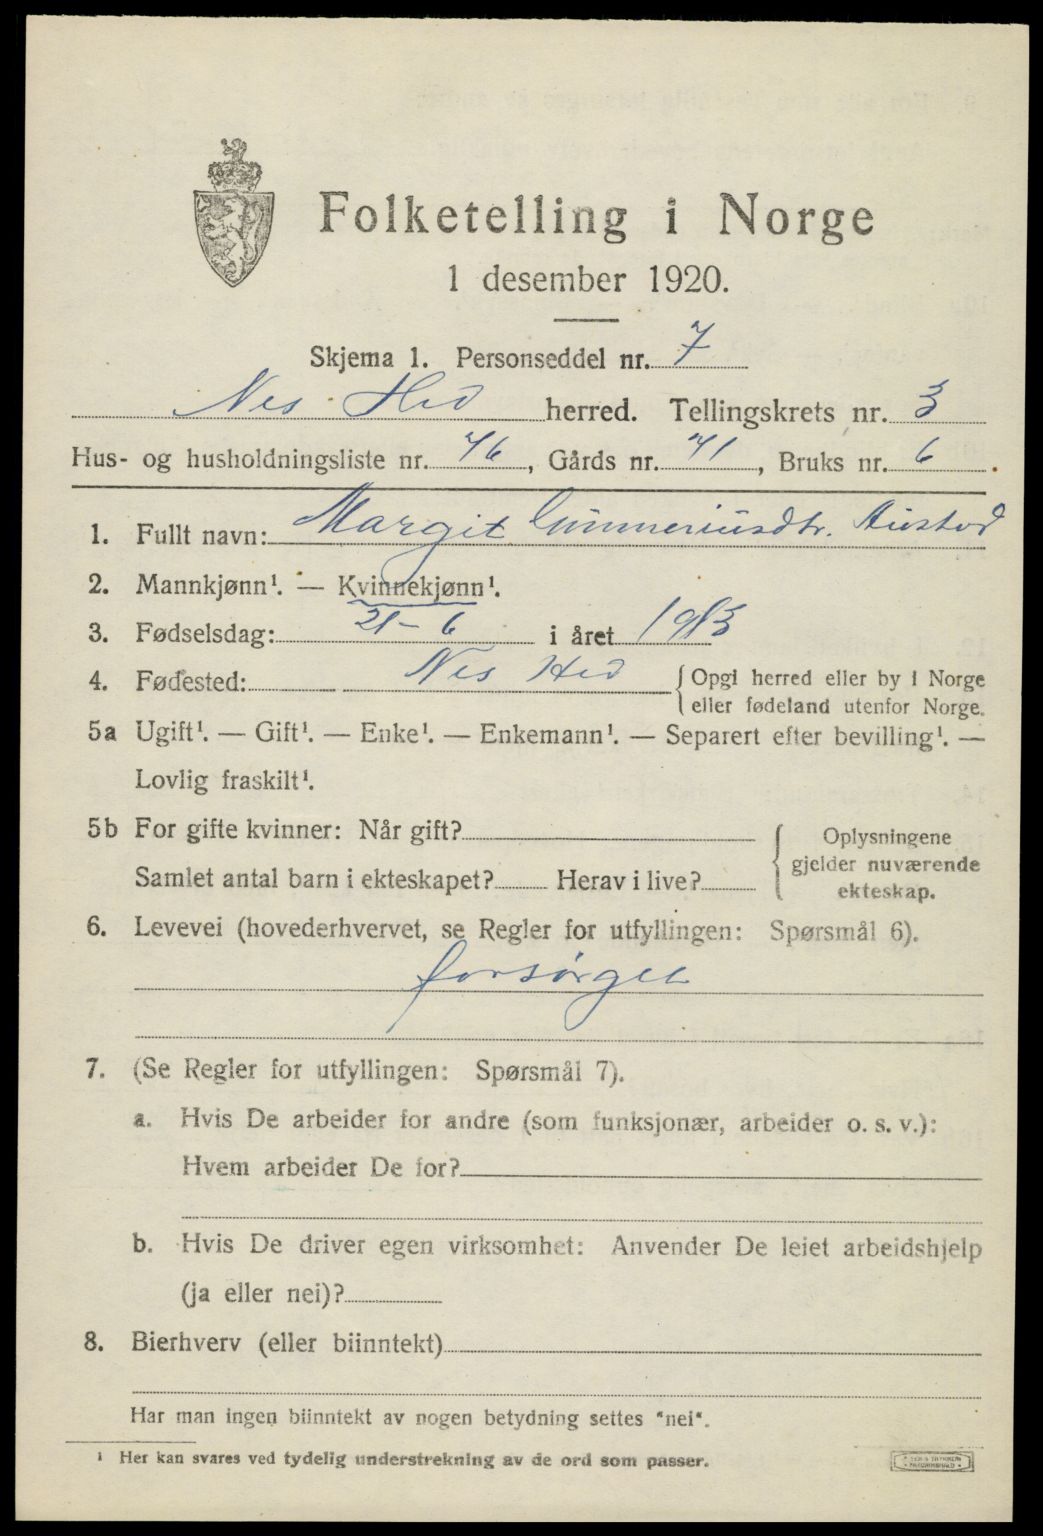 Folketelling i Norge
1 desember 1920.
Skjema 1. Personseddel nr. 7
Nes Hed herred. Tellingskrets nr. 3
Hus- og husholdningsliste nr. 76, Gårds nr. 71, Bruks nr. 6.
1. Fullt navn: Margit Gunneriusdtr. Austad
2. Mannkjønn¹. — Kvinnekjønn¹.
3. Fødselsdag: 21 - 6 i året 1913
4. Fødested: Nes Hed {Opgi herred eller by i Norge
eller fødeland utenfor Norge.
5a Ugift¹. — Gift¹. — Enke¹. — Enkemann¹. — Separert efter bevilling¹. —
Lovlig fraskilt¹.
5b For gifte kvinner: Når gift? { Oplysningene
gjelder nuværende
Samlet antal barn i ekteskapet? Herav i live? ekteskap.
6. Levevei (hovederhvervet, se Regler for utfyllingen: Spørsmål 6).
forsørget
7. (Se Regler for utfyllingen: Spørsmål 7).
a. Hvis De arbeider for andre (som funksjonær, arbeider o. s. v.):
Hvem arbeider De for?
b. Hvis De driver egen virksomhet: Anvender De leiet arbeidshjelp
(ja eller nei)?
8. Bierhverv (eller biinntekt)
Har man ingen biinntekt av nogen betydning settes "nei".
¹ Her kan svares ved tydelig understrekning av de ord som passer.